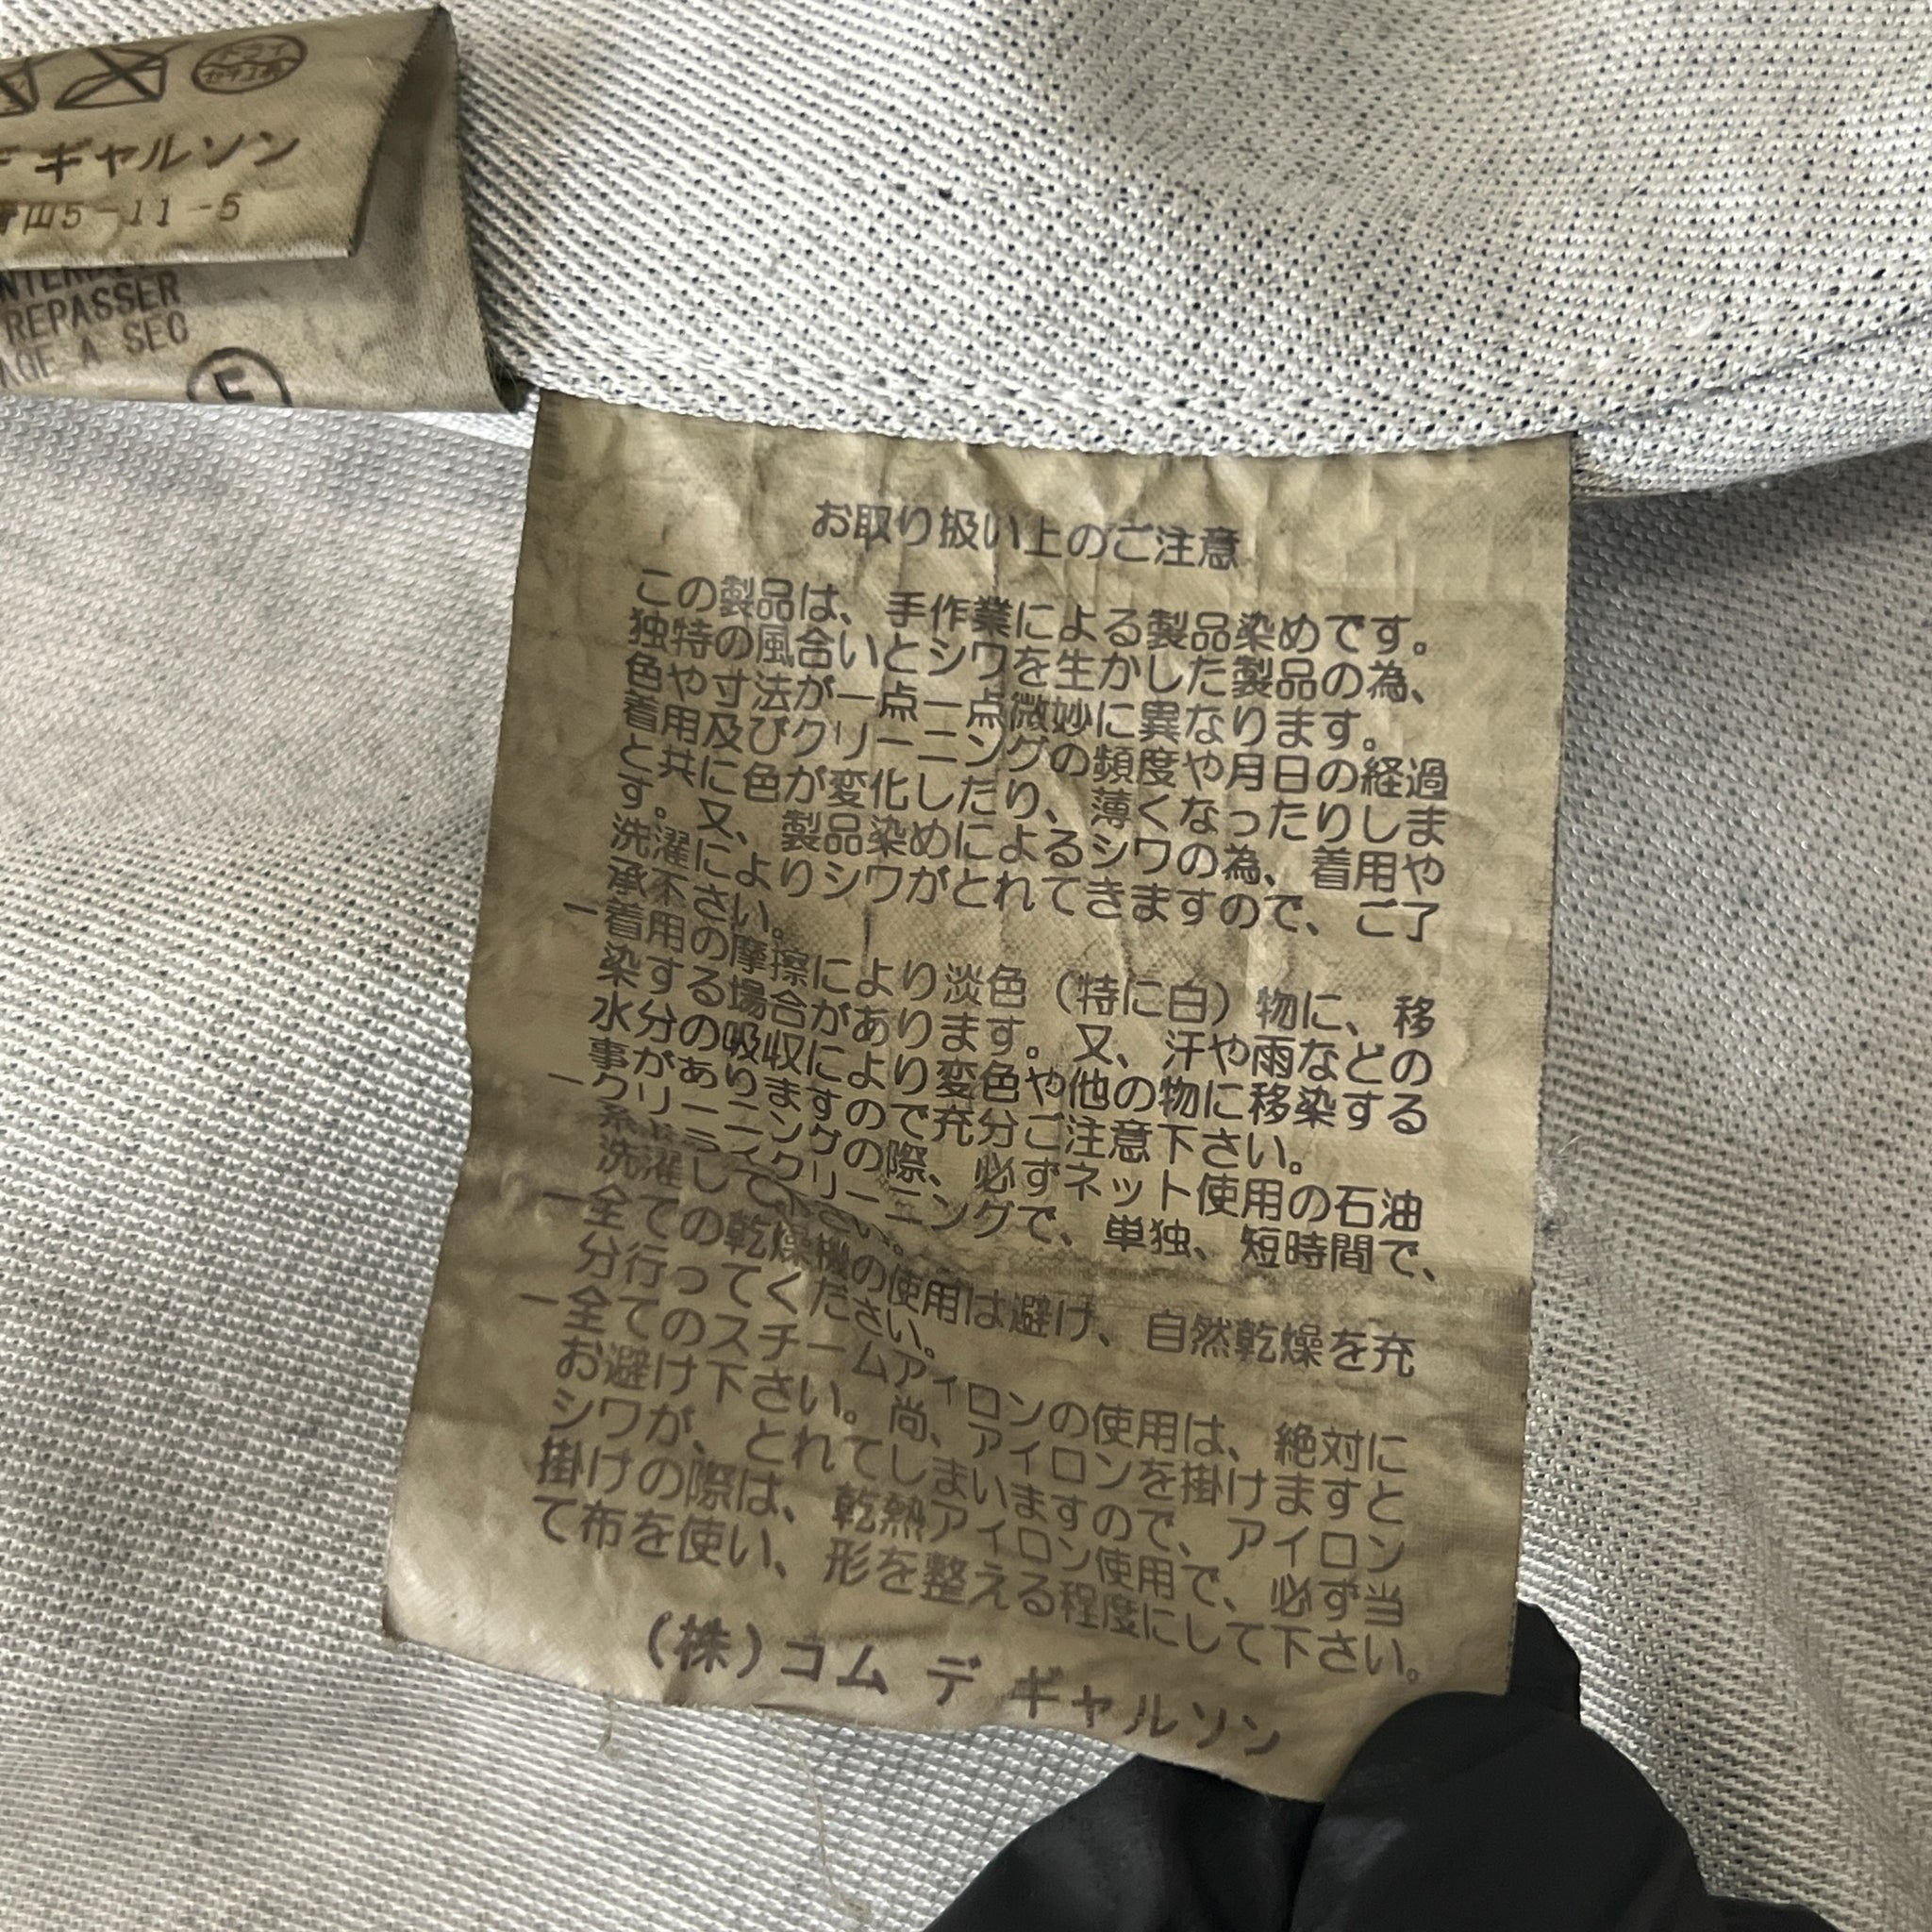 ドライ
セキユ系
デ ギャルソン
青山5-11-5
REPASSER
AGE A SEC
F
お取り扱い上のご注意
この製品は、手作業による製品染めです。
独特の風合いとシワを生かした製品の為、
色や寸法が一点一点微妙に異なります。
着用及びクリーニングの頻度や月日の経過
と共に色が変化したり、薄くなったりしま
す。又、製品染めによるシワの為、着用や
洗濯によりシワがとれてきますので、ご了
承下さい。
−着用の摩擦により淡色（特に白）物に、移
染する場合があります。又、汗や雨などの
水分の吸収により変色や他の物に移染する
事がありますので充分ご注意下さい。
−クリーニングの際、必ずネット使用の石油
系ドライクリーニングで、単独、短時間で、
洗濯して下さい。
−全ての乾燥機の使用は避け、自然乾燥を充
分行ってください。
−全てのスチームアイロンの使用は、絶対に
お避け下さい。尚、アイロンを掛けますと
シワが、とれてしまいますので、アイロン
掛けの際は、乾熱アイロン使用で、必ず当
て布を使い、形を整える程度にして下さい。
(株)コム デ ギャルソン